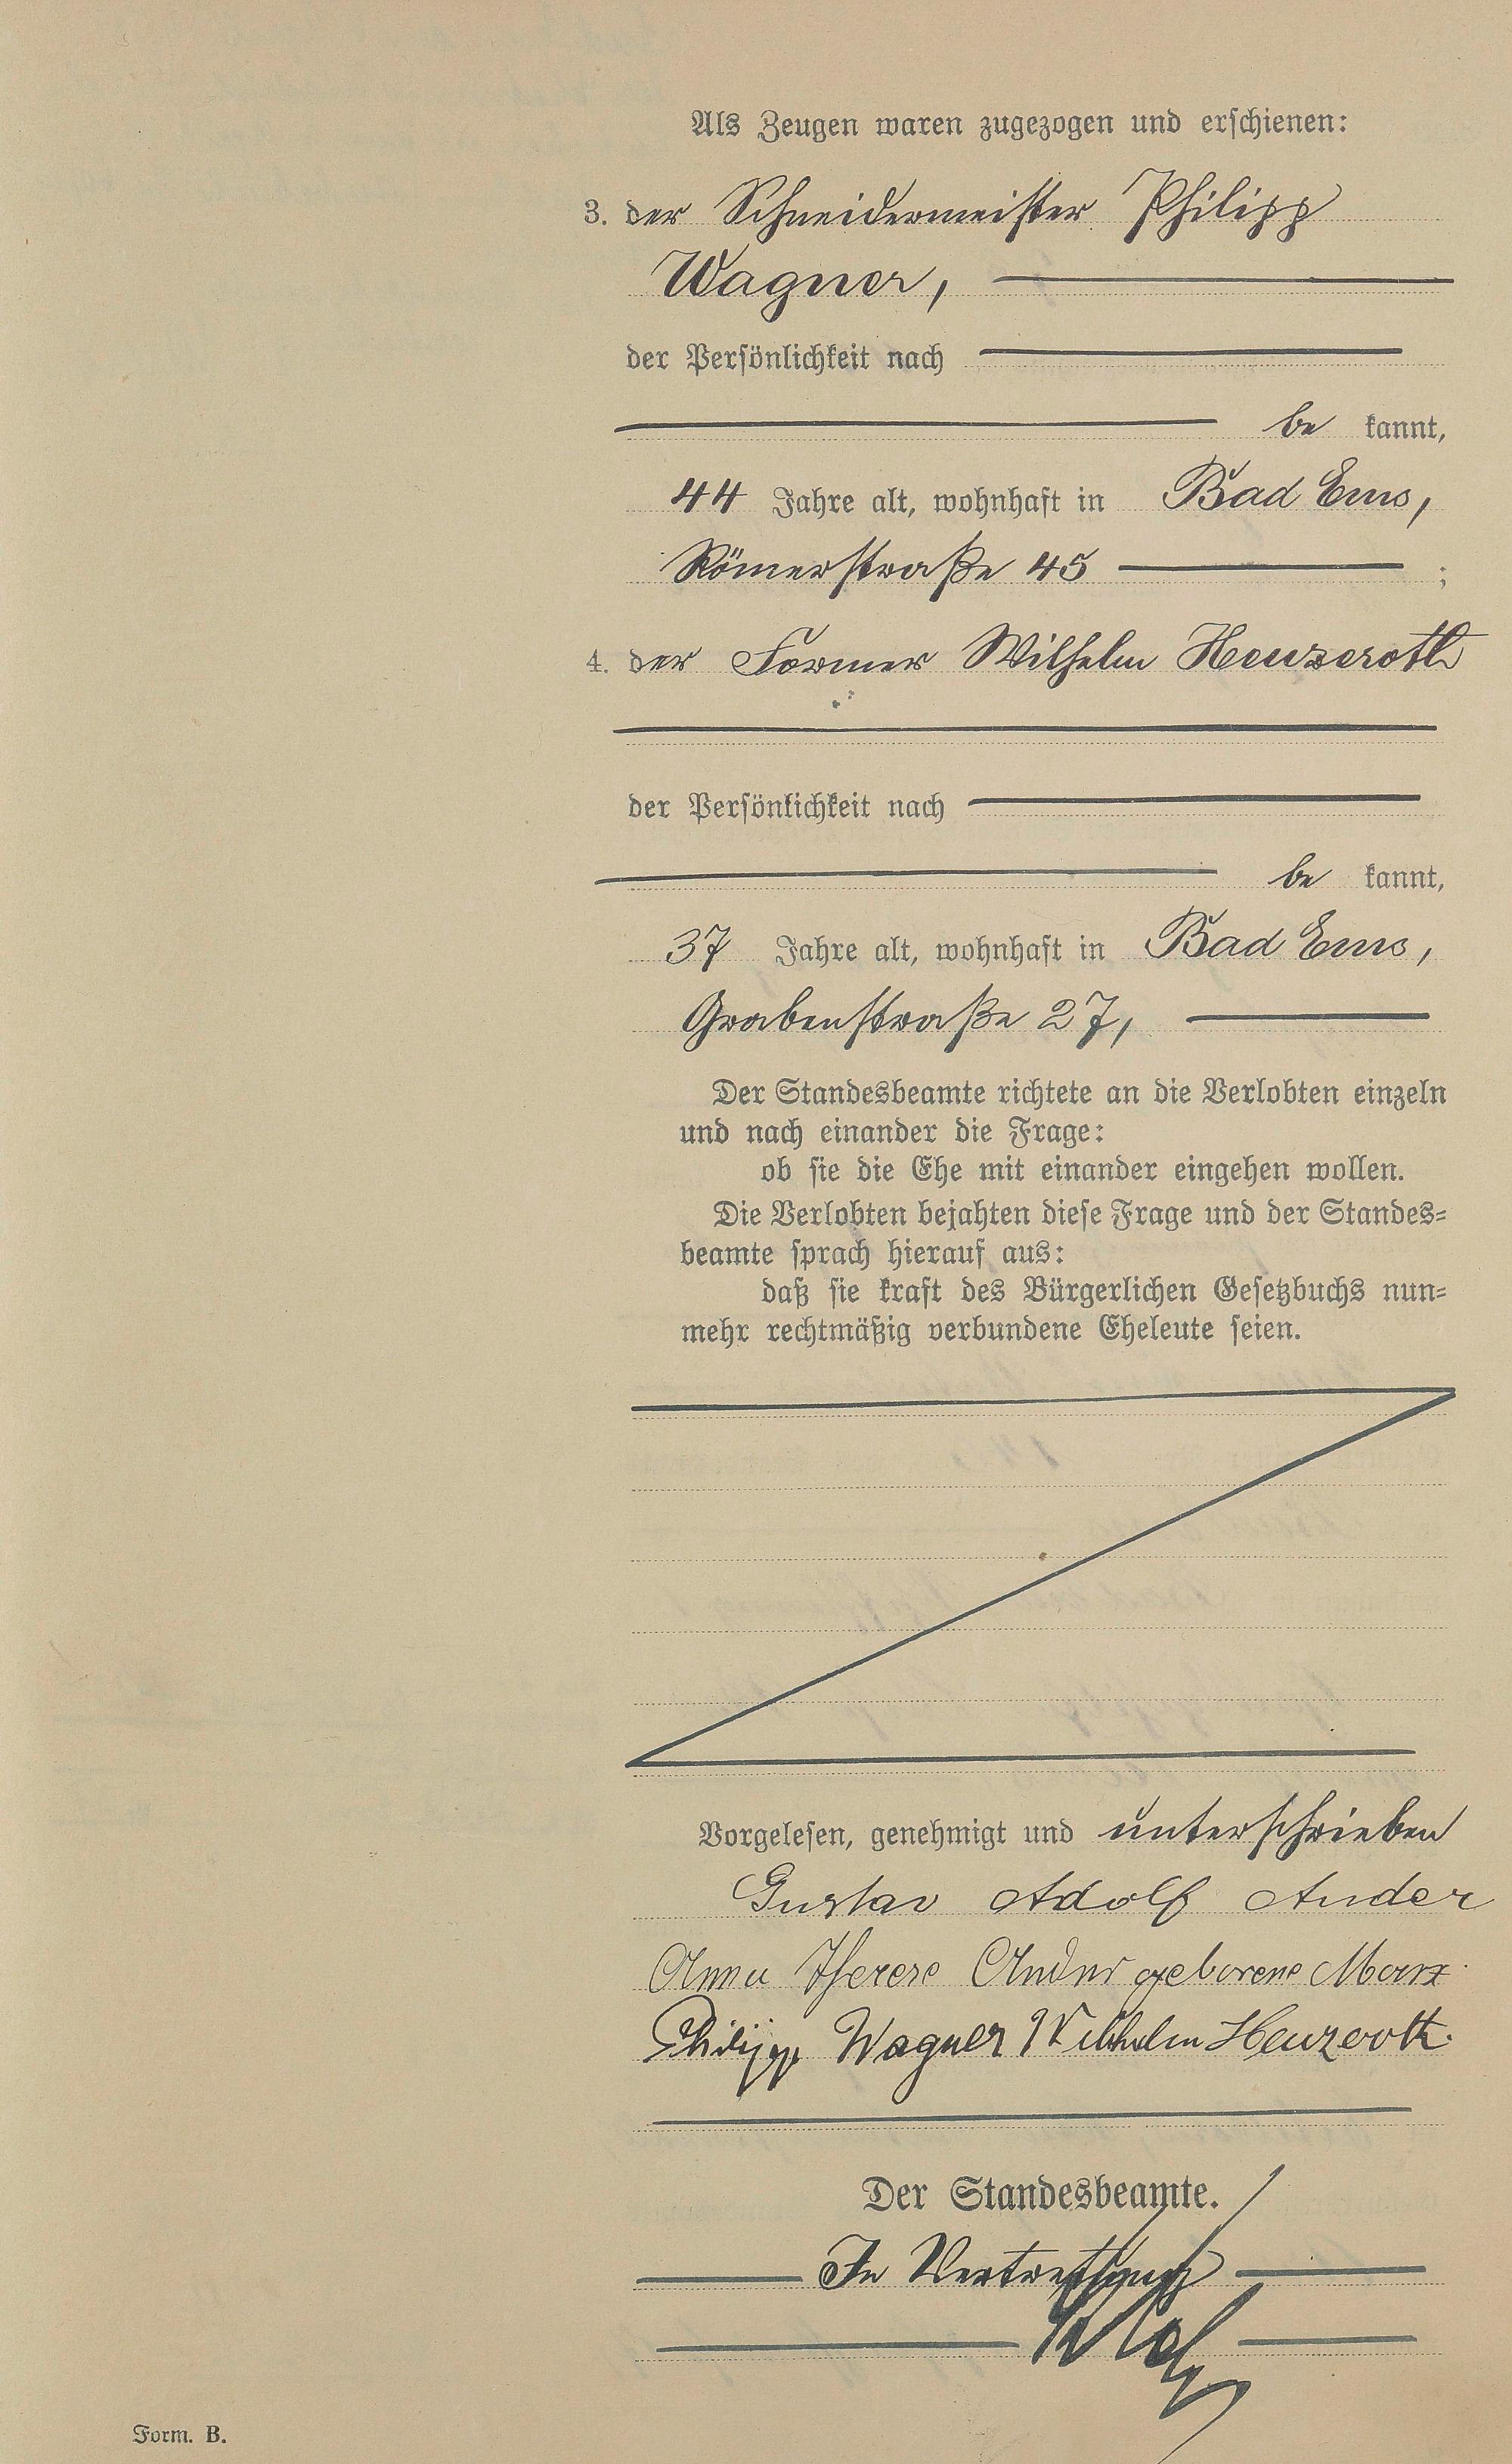 Als Zeugen waren zugezogen und erschienen:
3. der Schneidermeister Philipp
Wagner,
der Persönlichkeit nach
be kannt,
44 Jahre alt, wohnhaft in Bad Ems,
Römerstraße 45 ;
4. der Former Wilhelm Heuzeroth
der Persönlichkeit nach
be kannt,
37 Jahre alt, wohnhaft in Bad Ems,
Grabenstraße 27,
Der Standesbeamte richtete an die Verlobten einzeln
und nach einander die Frage:
ob sie die Ehe mit einander eingehen wollen.
Die Verlobten bejahten diese Frage und der Standes=
beamte sprach hierauf aus:
daß sie kraft des Bürgerlichen Gesetzbuchs nun=
mehr rechtmäßig verbundene Eheleute seien.
Vorgelesen, genehmigt und unterschrieben
Gustav Adolf Ander
Anna Therese Ander geborene Marx
Philipp Wagner Wilhelm Heuzeroth.
Der Standesbeamte.
In Vertretung
Form. B.